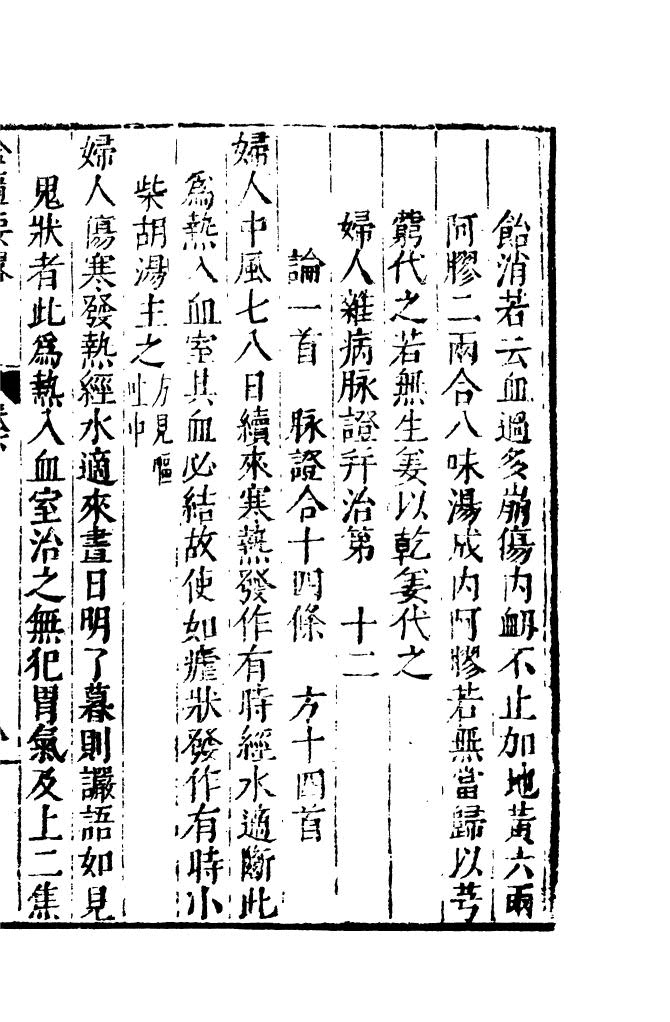 飴消若云血過多崩傷内衂不止加地黄六兩
阿膠二兩合八味湯成内阿膠若無當歸以芎
藭代之若無生姜以乾姜代之
婦人雜病脉證幷治第 十二
論一首 脉證合十四條 方十四首
婦人中風七八日續來寒熱發作有時經水適斷此
爲熱入血室其血必結故使如瘧狀發作有時小
柴胡湯主之方見嘔吐中
婦人傷寒發熱經水適來晝日明了暮則讝語如見
鬼狀者此爲熱入血室治之無犯胃氣及上二焦
金匱要畧